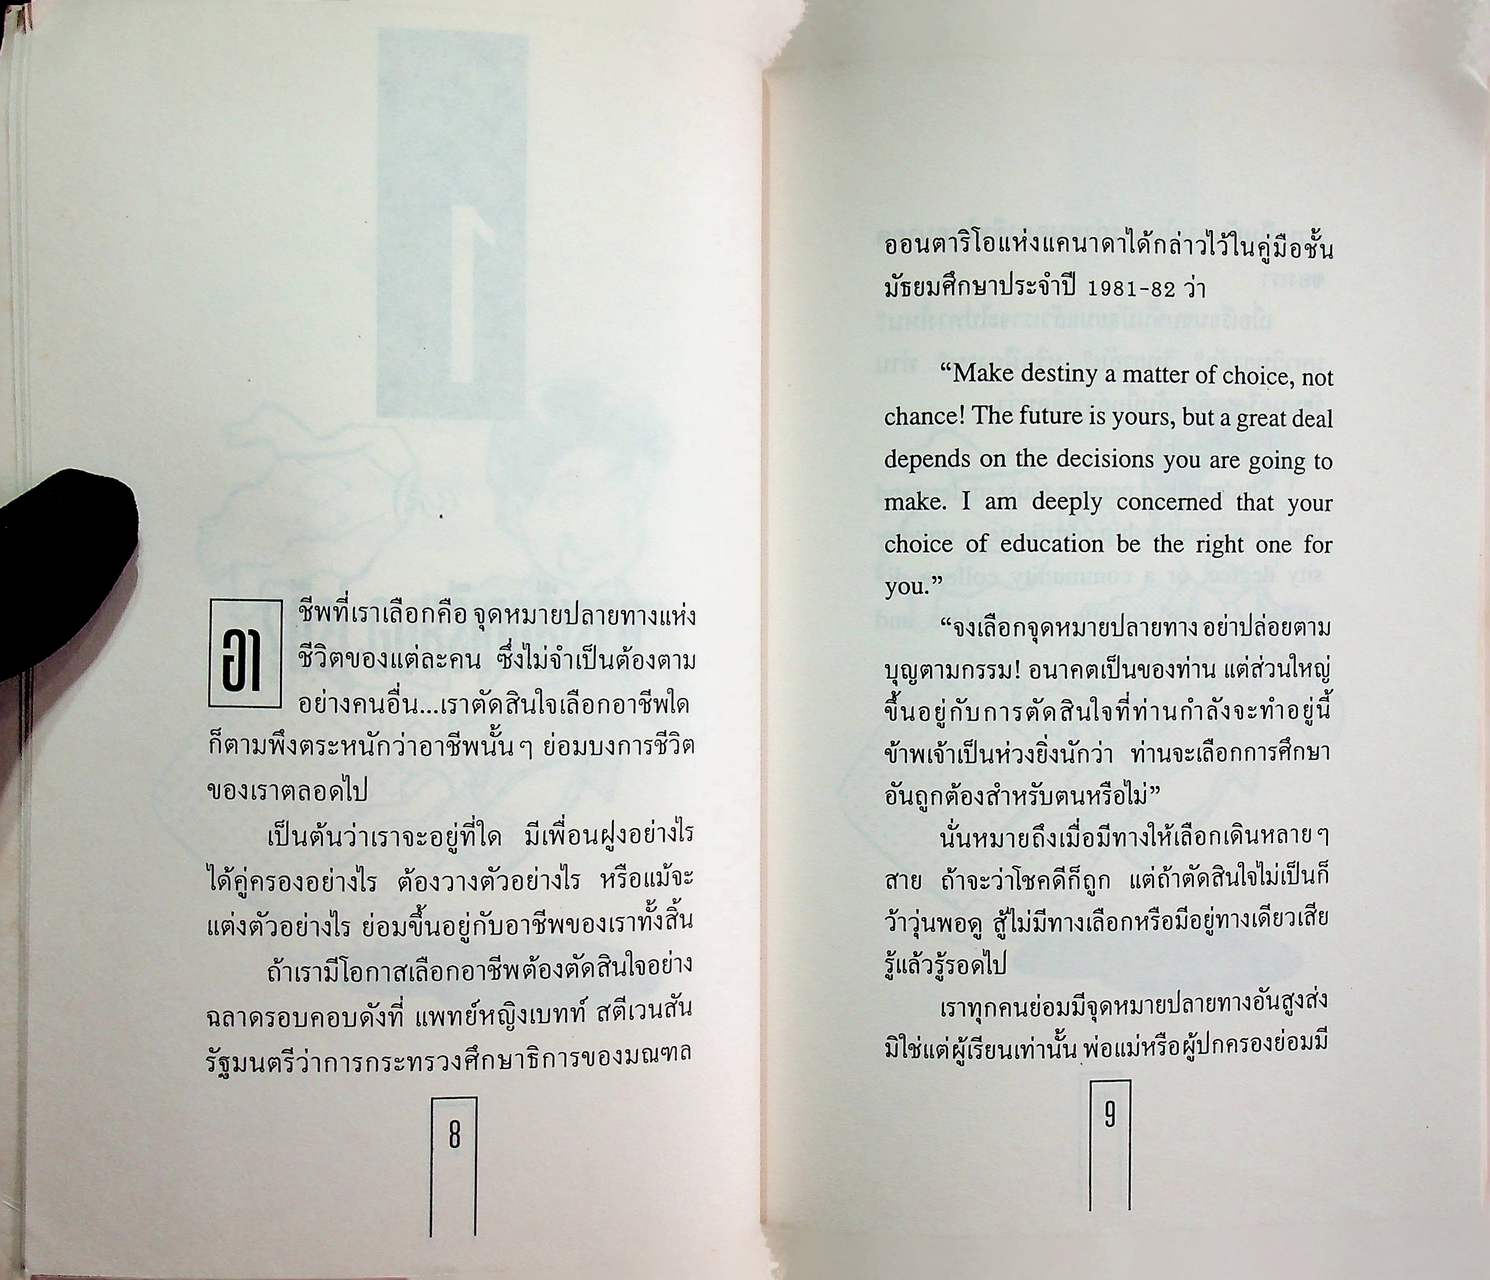 อาชีพที่เราเลือกคือ จุดหมายปลายทางแห่ง
ชีวิตของแต่ละคน ซึ่งไม่จำเป็นต้องตาม
อย่างคนอื่น...เราตัดสินใจเลือกอาชีพใด
ก็ตามพึงตระหนักว่าอาชีพนั้นๆ ย่อมบงการชีวิต
ของเราตลอดไป
เป็นต้นว่าเราจะอยู่ที่ใด มีเพื่อนฝูงอย่างไร
ได้คู่ครองอย่างไร ต้องวางตัวอย่างไร หรือแม้จะ
แต่งตัวอย่างไร ย่อมขึ้นอยู่กับอาชีพของเราทั้งสิ้น
ถ้าเรามีโอกาสเลือกอาชีพต้องตัดสินใจอย่าง
ฉลาดรอบคอบดังที่ แพทย์หญิงเบทท์ สตีเวนสัน
รัฐมนตรีว่าการกระทรวงศึกษาธิการของมณฑล
8
ออนตาริโอแห่งแคนาดาได้กล่าวไว้ในคู่มือชั้น
มัธยมศึกษาประจำปี 1981-82 ว่า
“Make destiny a matter of choice, not
chance! The future is yours, but a great deal
depends on the decisions you are going to
make. I am deeply concerned that your
choice of education be the right one for
you.”
“จงเลือกจุดหมายปลายทาง อย่าปล่อยตาม
บุญตามกรรม! อนาคตเป็นของท่าน แต่ส่วนใหญ่
ขึ้นอยู่กับการตัดสินใจที่ท่านกำลังจะทำอยู่นี้
ข้าพเจ้าเป็นห่วงยิ่งนักว่า ท่านจะเลือกการศึกษา
อันถูกต้องสำหรับตนหรือไม่”
นั่นหมายถึงเมื่อมีทางให้เลือกเดินหลายๆ
สาย ถ้าจะว่าโชคดีก็ถูก แต่ถ้าตัดสินใจไม่เป็นก็
ว้าวุ่นพอดู สู้ไม่มีทางเลือกหรือมีอยู่ทางเดียวเสีย
รู้แล้วรู้รอดไป
เราทุกคนย่อมมีจุดหมายปลายทางอันสูงส่ง
มิใช่แต่ผู้เรียนเท่านั้น พ่อแม่หรือผู้ปกครองย่อมมี
9